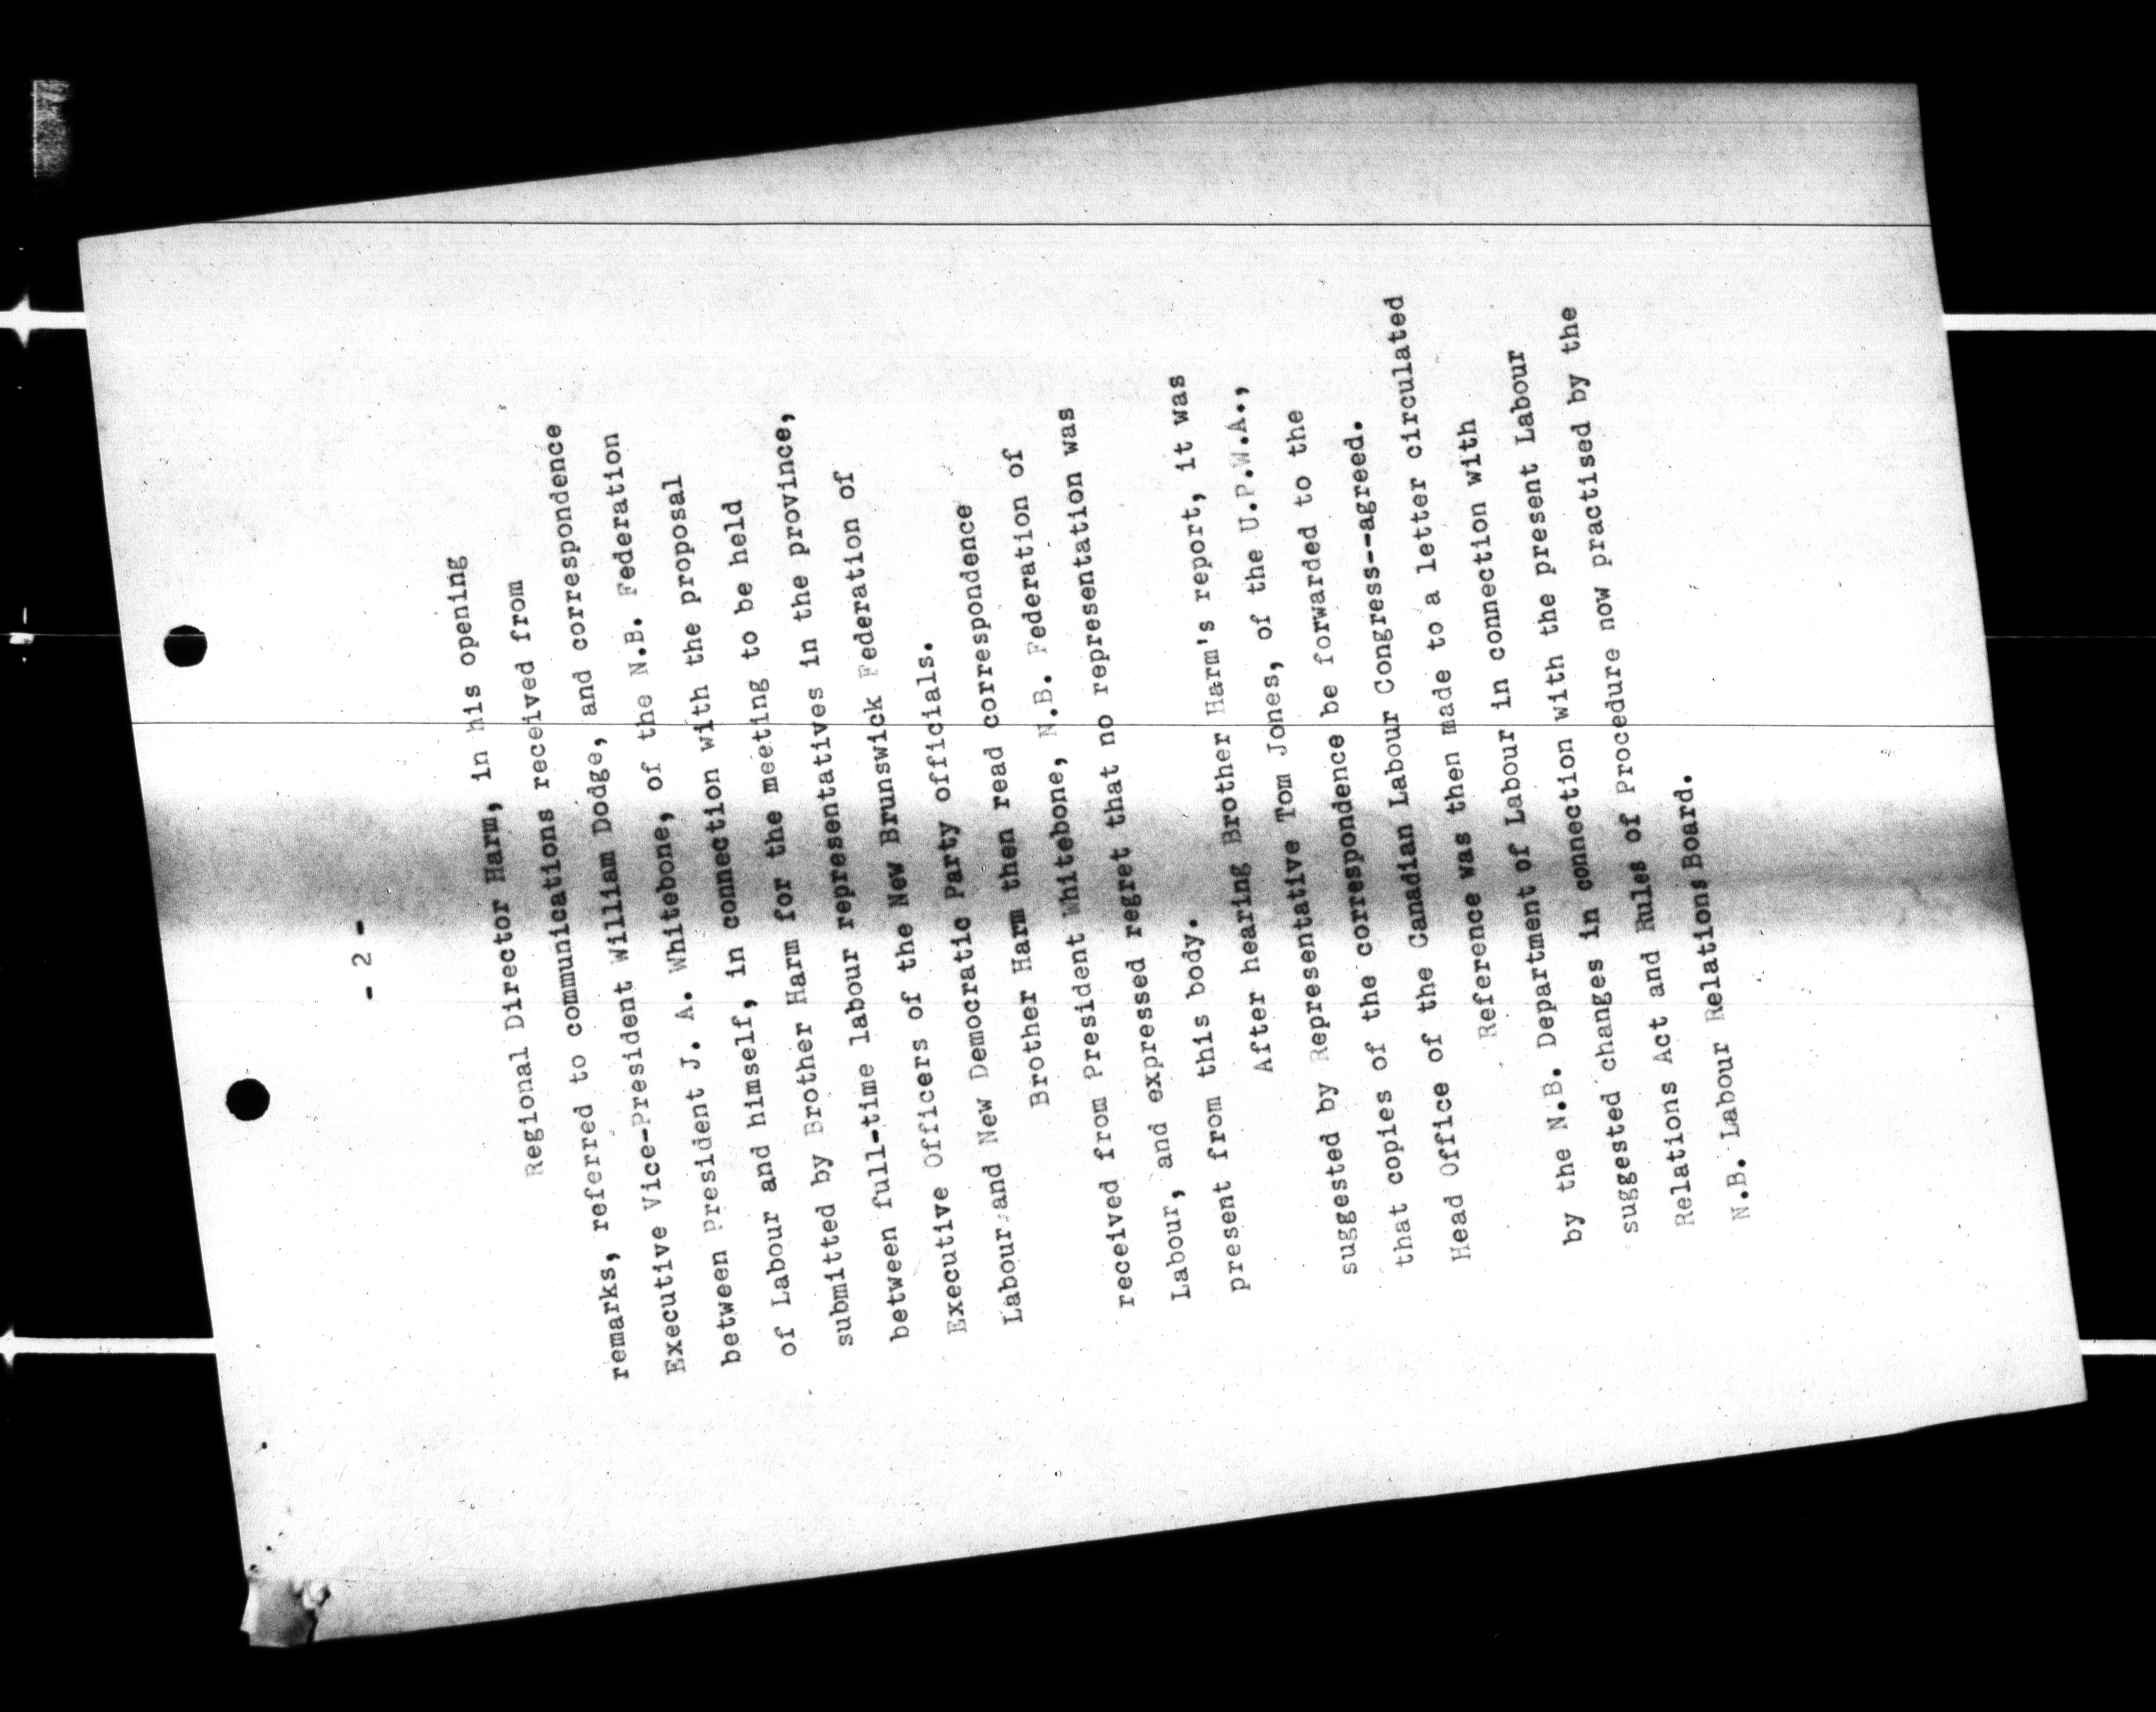 - 2 -
Regional Director Harm, in his opening
remarks, referred to communications received from
Executive Vice-President William Dodge, and correspondence
between President J. A. Whitebone, of the N.B. Federation
of Labour and himself, in connection with the proposal
submitted by Brother Harm for the meeting to be held
between full-time labour representatives in the province,
Executive Officers of the New Brunswick Federation of
Labour and New Democratic Party officials.
Brother Harm then read correspondence
received from President Whitebone, N.B. Federation of
Labour, and expressed regret that no representation was
present from this body.
After hearing Brother Harm's report, it was
suggested by Representative Tom Jones, of the U.P.W.A.,
that copies of the correspondence be forwarded to the
Head Office of the Canadian Labour Congress--agreed.
Reference was then made to a letter circulated
by the N.B. Department of Labour in connection with
suggested changes in connection with the present Labour
Relations Act and Rules of Procedure now practised by the
N.B. Labour Relations Board.